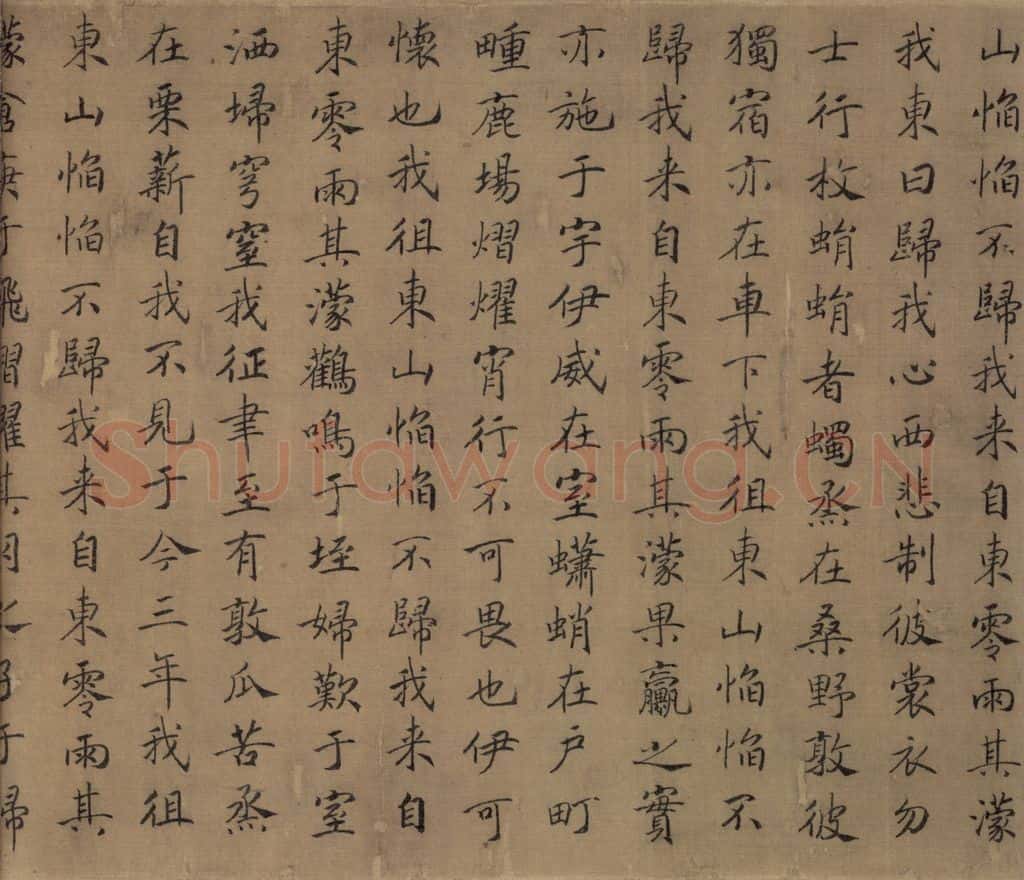 山慆慆不歸我来自東零雨其濛
我東曰歸我心西悲制彼裳衣勿
士行枚蜎蜎者蠋烝在桑野敦彼
獨宿亦在車下我徂東山慆慆不
歸我来自東零雨其濛果臝之實
亦施于宇伊威在室蠨蛸在戶町
畽鹿場熠燿宵行不可畏也伊可
懷也我徂東山慆慆不歸我来自
東零雨其濛鸛鳴于垤婦歎于室
洒埽穹窒我征聿至有敦瓜苦烝
在栗薪自我不見于今三年我徂
東山慆慆不歸我来自東零雨其
濛倉庚于飛熠燿其羽之子于歸
Shufawang.CN